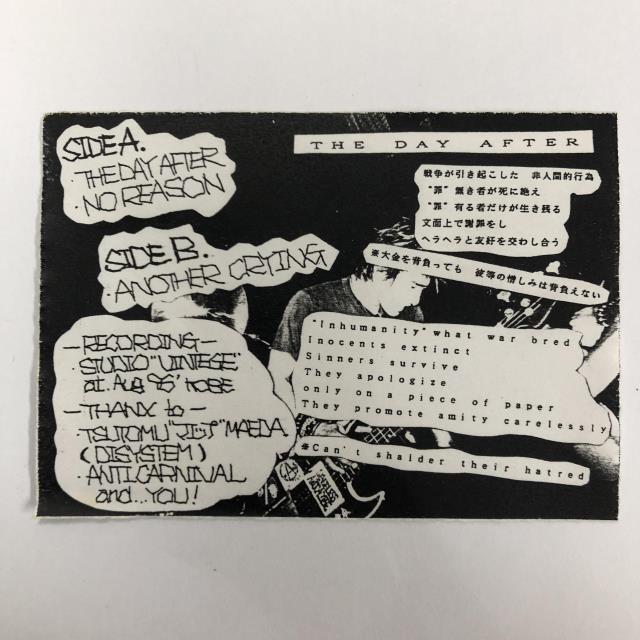 SIDE A.
・THE DAY AFTER
・NO REASON
SIDE B.
・ANOTHER CRYING
—RECORDING—
・STUDIO "VINTEGE"
at. Aug 96' KOBE
—THANX to—
・TSUTOMU" MAEDA
(DISYSTEM)
・ANTI CARNIVAL
and...YOU!
THE DAY AFTER
戦争が引き起こした 非人間的行為
"罪"無き者が死に絶え
"罪"有る者だけが生き残る
文面上で謝罪をし
ヘラヘラと友好を交わし合う
※大金を背負っても 彼等の憎しみは背負えない
"Inhumanity"what war bred
Inocents extinct
Sinners survive
They apologize
only on a piece of paper
They promote amity carelessly
※Can't shalder their hatred